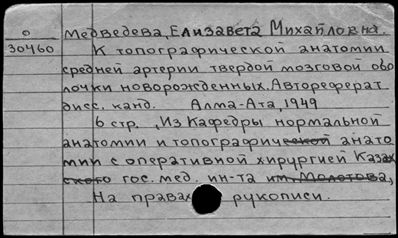 о
30460
Медведева, Елизавета Михайловна.
К топографической анатомии
средней артерии твердой мозговой обо
лочки новорожденных. Автореферат
дисс. канд. Алма-Ата, 1949
6 стр. , Из Кафедры нормальной
анатомии и топографической анато
мии с оперативной хирургией Казах
ского гос. мед. ин-та им. Молотова,
На правах рукописи.